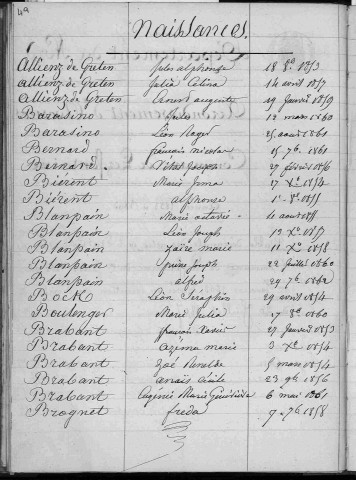 Naissances.
Allienz de Gréten Jules alphonse 18 8e 1853
Allienz de Gréten Julie Célina 14 avril 1857
Allienz de Gréten Ernest auguste 19 Janvier 1859
Barasino Jules 12 mars 1860
Barasino Léon Roger 25 aout 1861
Bernard français Nicolas 15 7e 1861
Bernard. Joseph 27 février 1856
Biérent Marie Irma 17 Xe 1854
Biérent alphonse 1e 8e 1855
Blanpain Marie 11 aout 1855
Blanpain Léon Joseph 13 Xe 1857
Blanpain Zaïre marie 11 Xe 1858
Blanpain Joseph 22 Juillet 1860
Blanpain alfred 29 7e 1862
Bock Léon Séraphin 29 avril 1854
Boulenger Marie Julia 17 8e 1860
Brabant françois Xavier 27 Janvier 1853
Brabant Azéma marie 3 Xe 1854
Brabant Zoé 5 mars 1854
Brabant anaïs Cécile 23 9e 1856
Brabant Eugénie Marie 6 mai 1861
Brognet freda 7 7e 1858